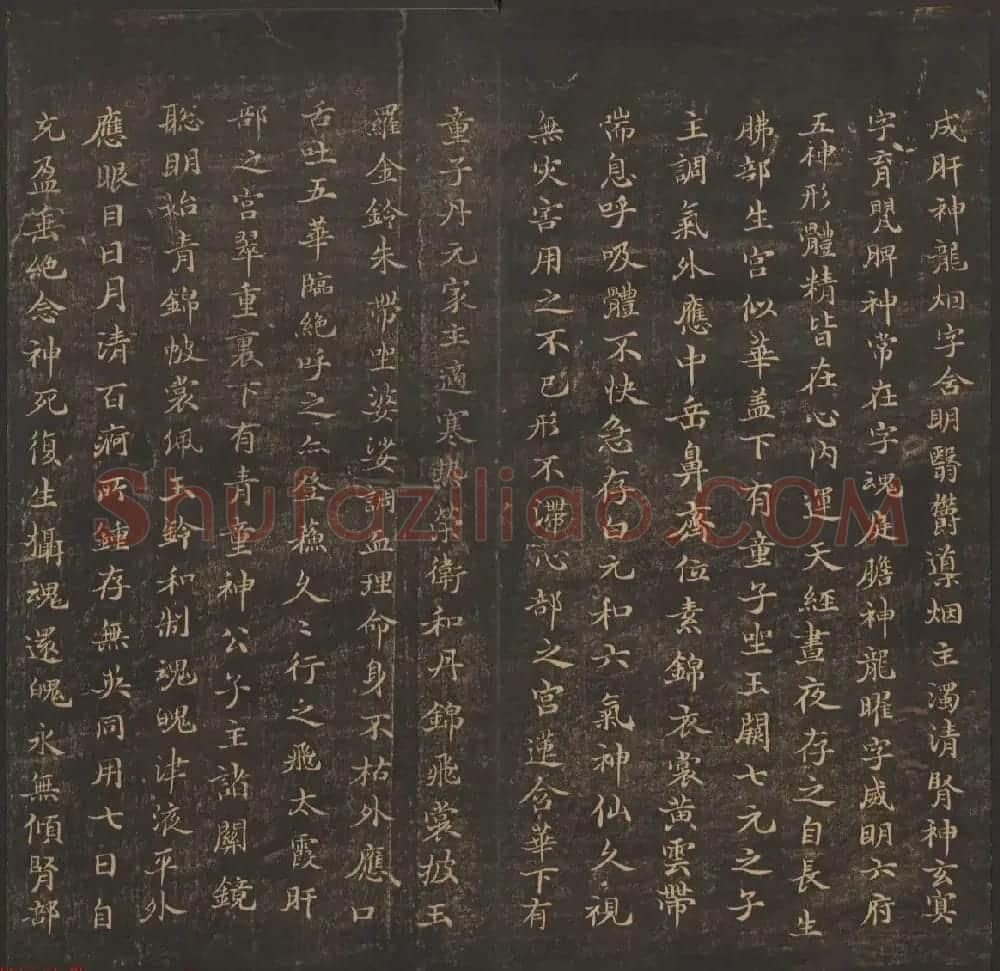 成肝神龍烟字含明翳鬱導烟主濁清腎神玄冥
字育嬰脾神常在字魂庭膽神龍曜字威明六府
五神形體精皆在心內運天經晝夜存之自長生
肺部生宮似華盖下有童子坐玉闕七元之子
主調氣外應中岳鼻齊位素錦衣裳黃雲帶
喘息呼吸體不快急存白元和六氣神仙久視
無灾害用之不已形不滯心部之宮蓮含華下有
童子丹元家主適寒熱榮衛和丹錦飛裳披玉
羅金鈴朱帶坐婆娑調血理命身不枯外應口
舌吐五華臨絕呼之亦登蘇久〻行之飛太霞肝
部之宮翠重裏下有青童神公子主諸關鏡
聡明始青錦帔裳佩玉鈴和制魂魄津液平外
應眼目日月清百痾所鍾存無英同用七日自
充盈垂絕念神死復生攝魂還魄永無傾腎部
Shufaziliao.COM